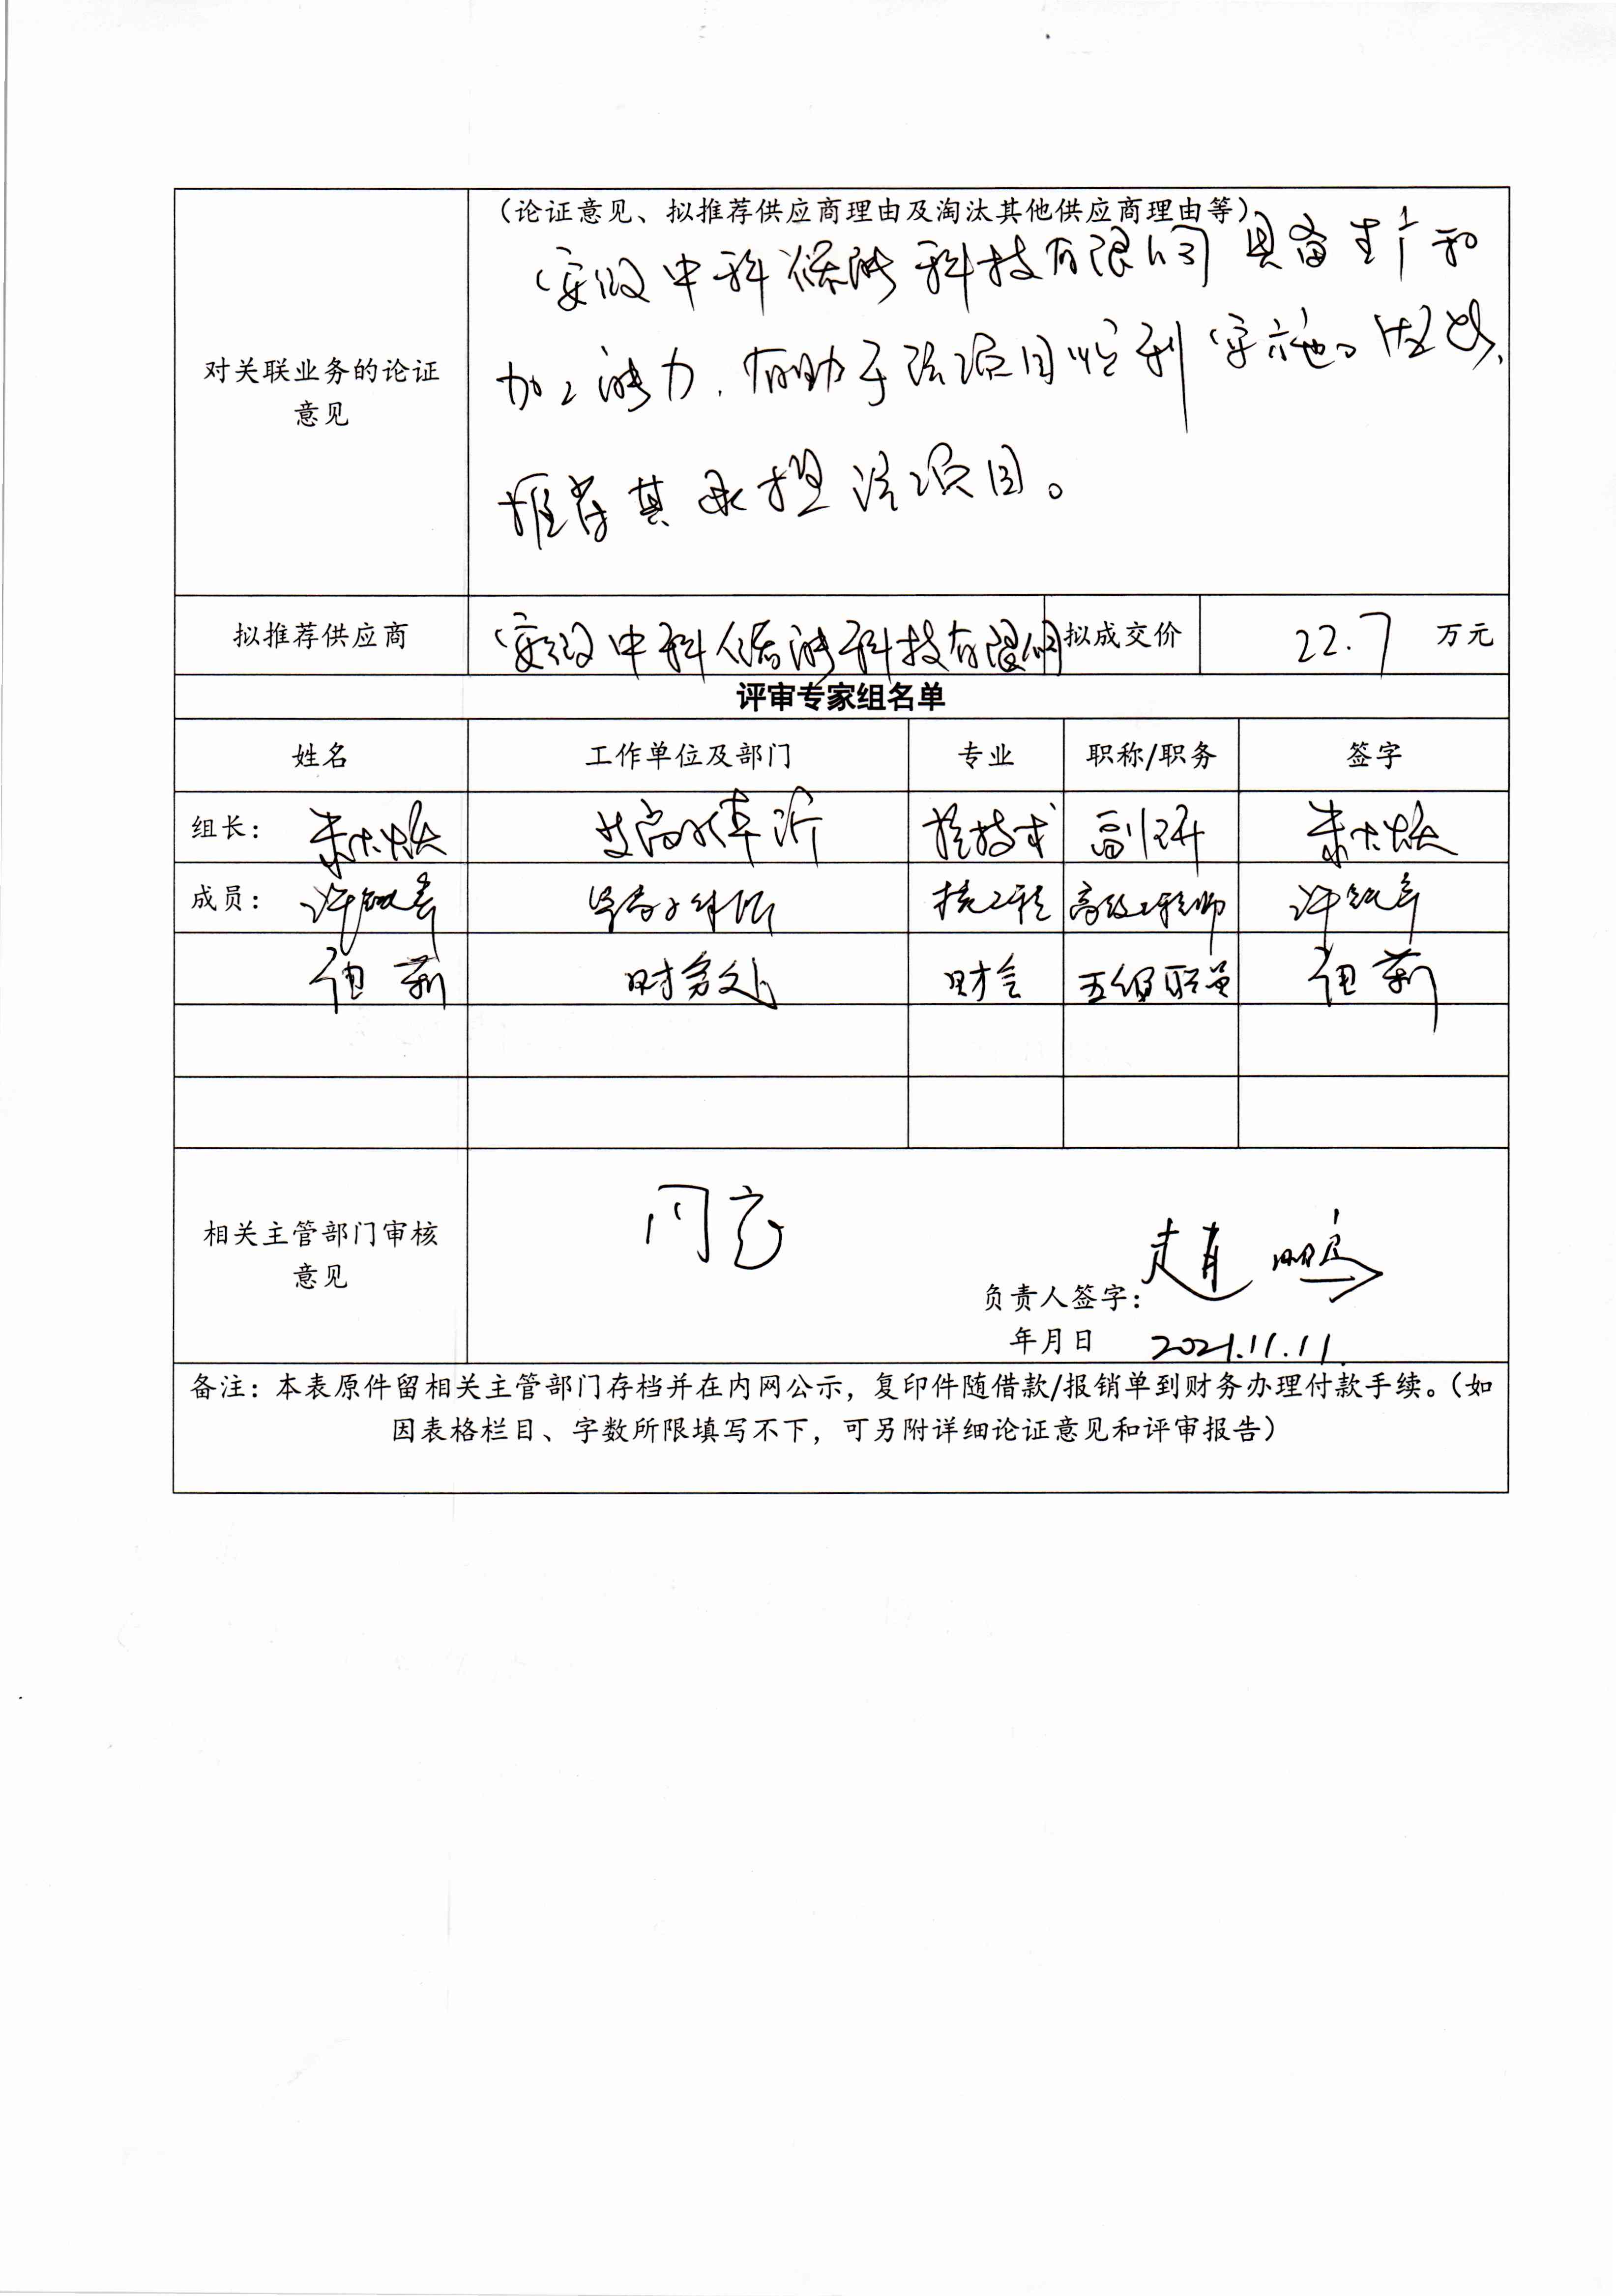 (论证意见、拟推荐供应商理由及淘汰其他供应商理由等)
安徽中科 科技有限公司具备生产和
加工能力，有助于该项目顺利实施。因此，
推荐其承担该项目。
对关联业务的论证
意见
拟推荐供应商 安徽中科 科技有限公司 拟成交价 22.7 万元
评审专家组名单
姓名 工作单位及部门 专业 职称/职务 签字
组长： 核技术 副研
成员： 许 核工程 高级工程师 许
莉 财务处 财会 五级职员 莉
相关主管部门审核
意见
同意
负责人签字： 赵鹏
年月日 2021.11.11.
备注：本表原件留相关主管部门存档并在内网公示，复印件随借款/报销单到财务办理付款手续。（如
因表格栏目、字数所限填写不下，可另附详细论证意见和评审报告）